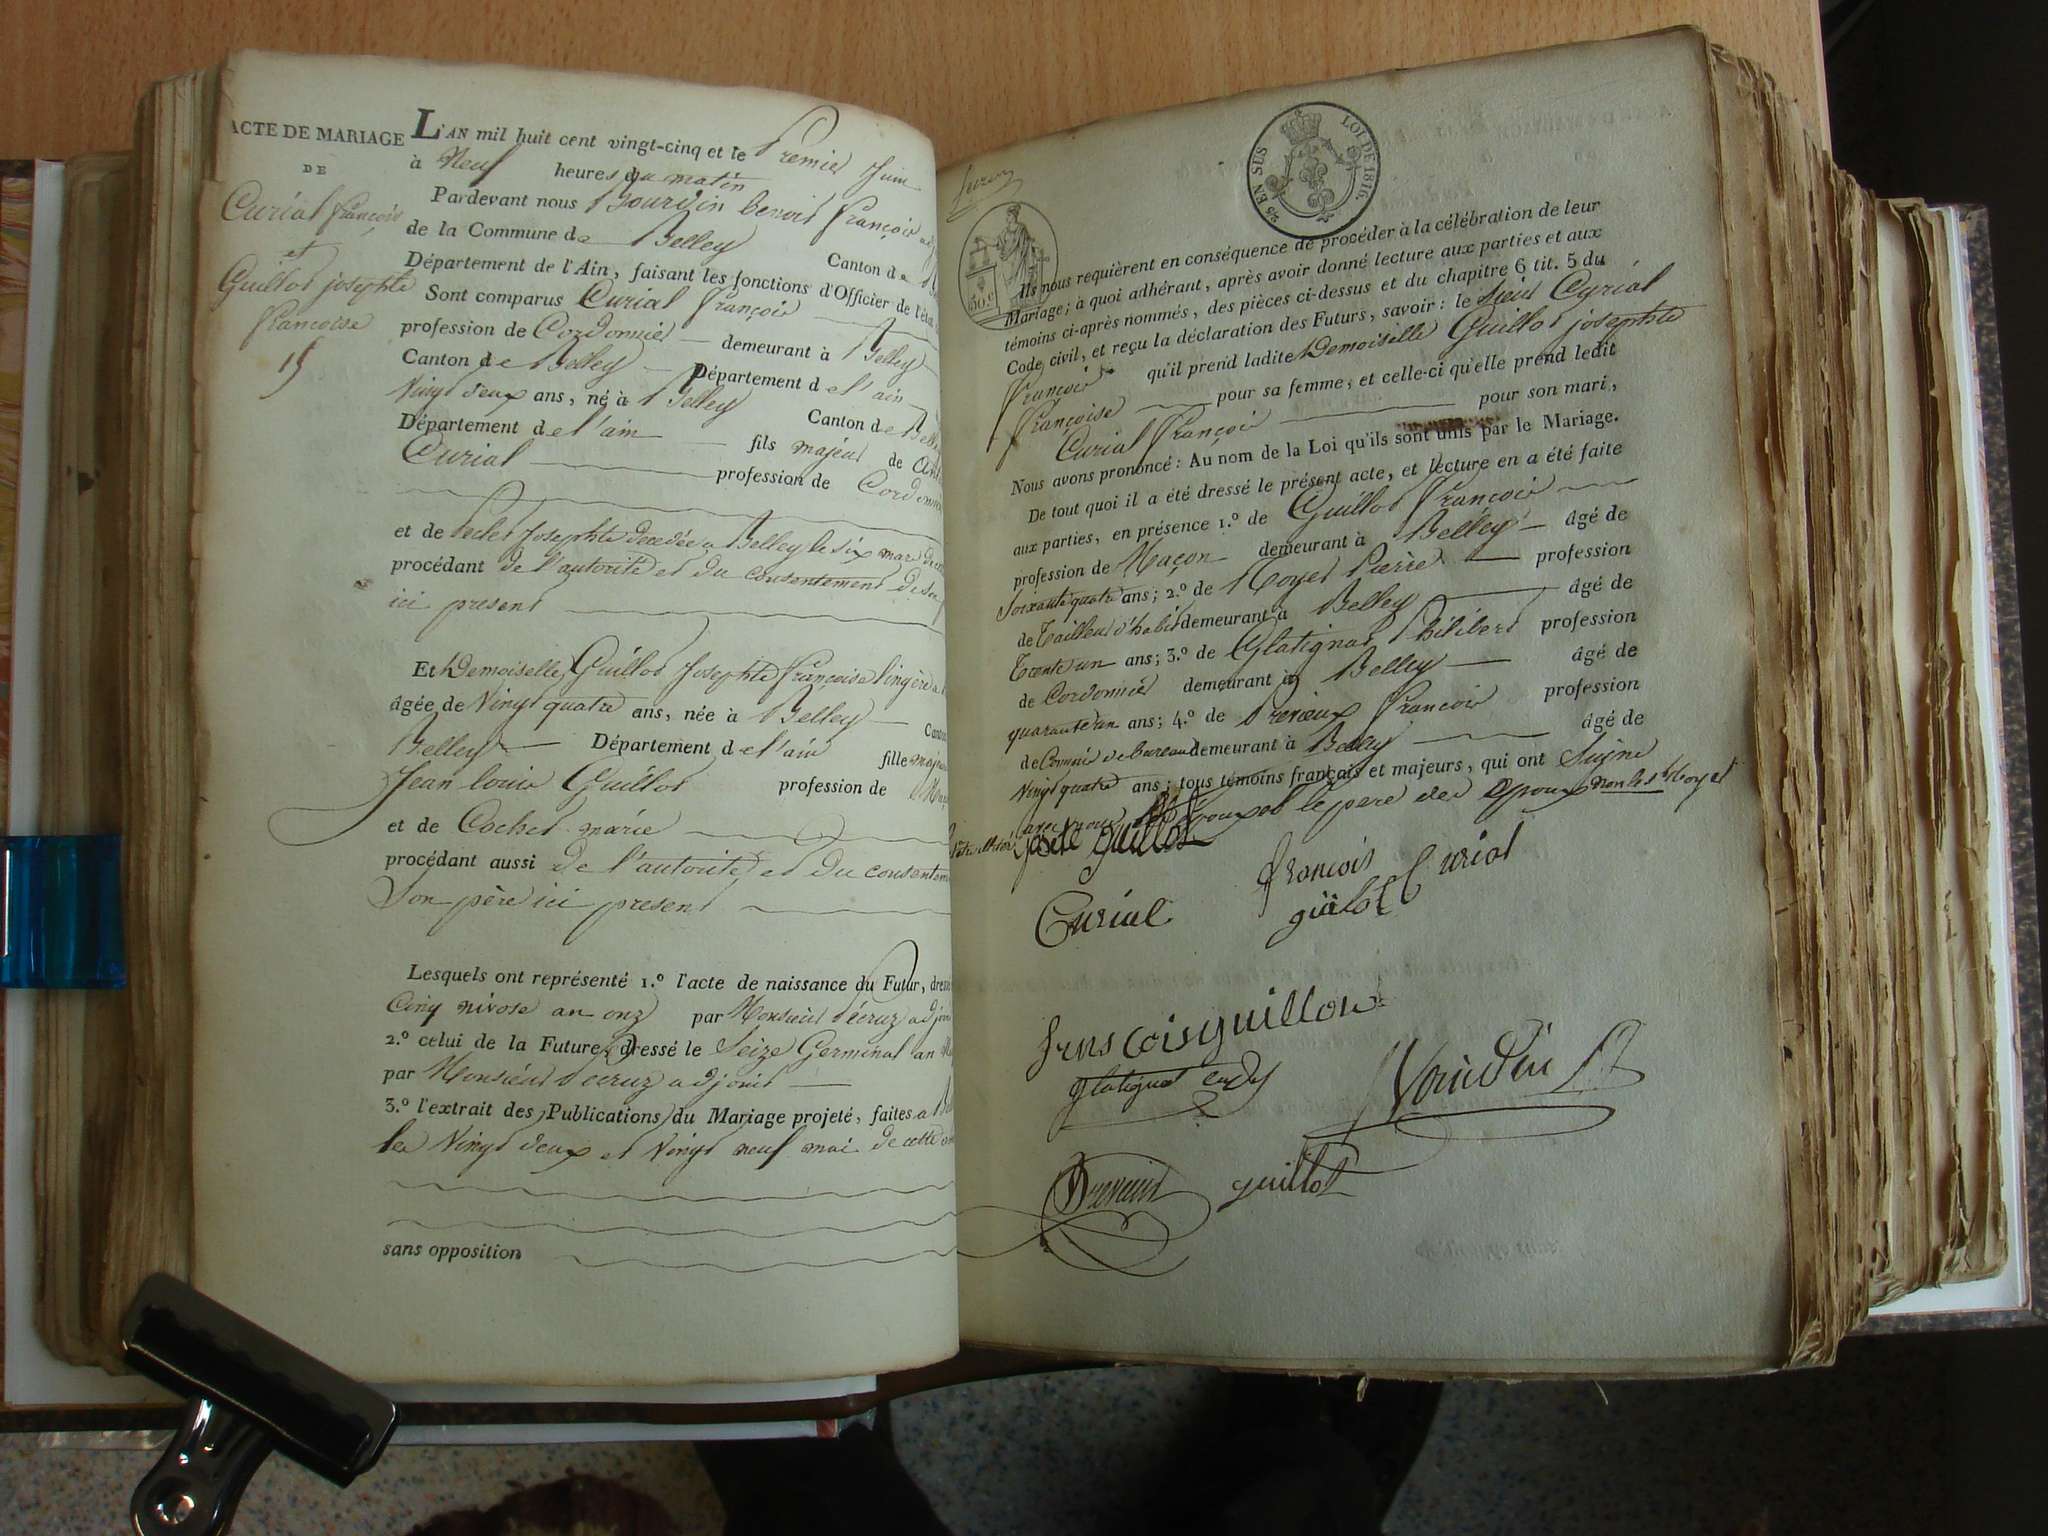 ACTE DE MARIAGE
DE
Curial françois
et
Guillot josephte
francoise
15
L'AN mil huit cent vingt-cinq et le Premier Juin
à Neuf heures du matin
Pardevant nous Bourdin benoit françois
de la Commune de Belley Canton de
Département de l'Ain, faisant les fonctions d'Officier de l'état
Sont comparus Curial françois
profession de Cordonnier demeurant à Belley
Canton de Belley Département de l'ain
Vingt deux ans, né à Belley Canton de Belley
Département de l'ain fils majeur de
Curial profession de Cordonnier
et de Josephte decedée a Belley le six mars
procédant de l'autorité et du consentement de son
ici present
Et Demoiselle Guillot Josephte françoise lingère
âgée de Vingt quatre ans, née à Belley Canton
Belley Département de l'ain fille majeure
Jean louis Guillot profession de
et de Cochet marie
procédant aussi de l'autorité et du consentement
Son père ici present
Lesquels ont représenté 1.º l'acte de naissance du Futur, dressé
Cinq nivose an onze par Monsieur Décruz adjoint
2.º celui de la Future, dressé le Seize Germinal an
par Monsieur Décruz adjoint
3.º l'extrait des Publications du Mariage projeté, faites a
les Vingt deux et Vingt neuf mai de cette
sans opposition
25 EN SUS
LOI DE 1816.
50 c.
Ils nous requièrent en conséquence de procéder à la célébration de leur
Mariage; à quoi adhérant, après avoir donné lecture aux parties et aux
témoins ci-après nommés, des pièces ci-dessus et du chapitre 6 tit. 5 du
Code civil, et reçu la déclaration des Futurs, savoir : le Sieur Curial
françois qu'il prend ladite Demoiselle Guillot josephte
françoise pour sa femme, et celle-ci qu'elle prend ledit
Curial françois pour son mari,
Nous avons prononcé : Au nom de la Loi qu'ils sont unis par le Mariage.
De tout quoi il a été dressé le présent acte, et lecture en a été faite
aux parties, en présence 1.º de Guillot françois
profession de Maçon demeurant à Belley âgé de
Soixante quatre ans; 2.º de Moyet Pierre profession
de Tailleur d'habit demeurant à Belley âgé de
Trente un ans; 3.º de Glatignat Philibert profession
de Cordonnier demeurant à Belley âgé de
quarante un ans; 4.º de Drevieux françois profession
de Commis de bureau demeurant à Belley âgé de
Vingt quatre ans; tous témoins français et majeurs, qui ont Signé
avec nous Epoux et le pere des Epoux non led. Moyet
guillot
françois
Curial
Curial
guilot
guillon
glatignat
Bourdin
guillot